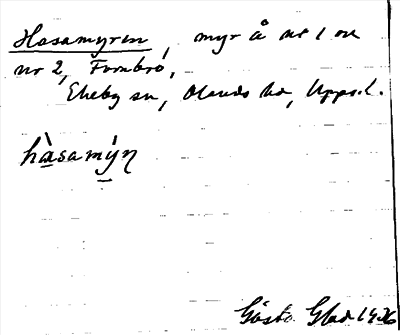 Hasamyren, myr å nr 1 och
nr 2, Fornbro,
Ekeby sn, Olands hd, Upps.l.
hàsamýn
Gösta Glad 1936